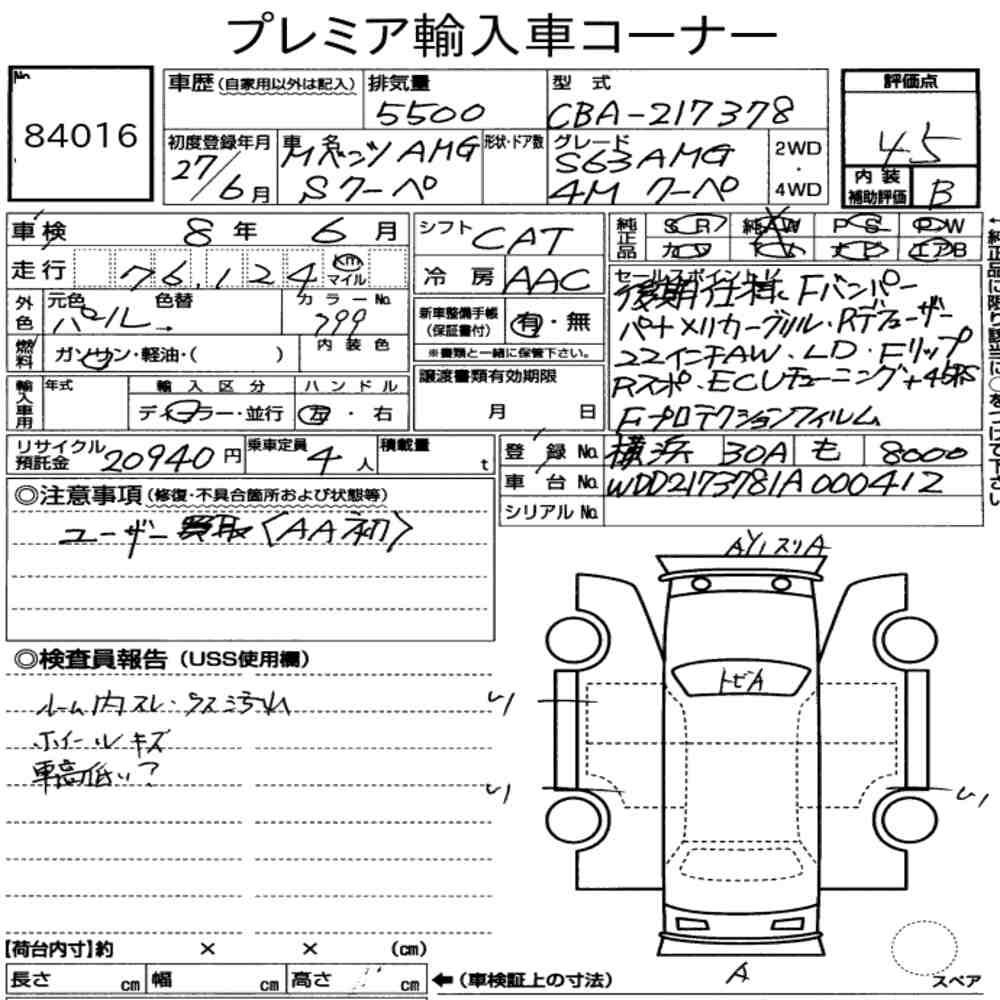 プレミア輸入車コーナー
No.
84016
車歴(自家用以外は記入)
排気量
5500
型 式
CBA-217378
評価点
4.5
内 装
補助評価
B
初度登録年月
27/6月
車 名
Mベンツ AMG
Sクーペ
形状・ドア数
グレード
S63 AMG
4M クーペ
2WD
・
4WD
車 検
8 年 6 月
走 行
76,124
km
マイル
外色
元色
パール→
色替
カラーNo.
799
燃料
ガソリン・軽油・( )
内 装 色
輸入車用
年式
輸 入 区 分
ディーラー・並行
ハ ン ド ル
左 ・ 右
リサイクル
預託金
20940 円
乗車定員
4 人
積載量
t
シフト
CAT
冷 房
AAC
新車整備手帳
(保証書付)
有・無
※書類と一緒に保管下さい。
譲渡書類有効期限
月 日
純正品
SR
純AW
PS
PW
カワ
ナビ
エアB
←純正品に限り該当に○をつけて下さい
セールスポイント
後期仕様 Fバンパー
パナメリカーグリル・Rディフューザー
22インチAW・LD・Fリップ
Rスポ・ECUチューニング
Fプロテクションフィルム
登 録 No.
横浜 30A も 8000
車 台 No.
WDD2173781A000412
シリアル No.
◎注意事項(修復・不具合箇所および状態等)
ユーザー買取〈AA初〉
◎検査員報告(USS使用欄)
ルーム内スレ・ウス汚れ
ホイールキズ
車高低い?
AY1スリA
トビA
A
スペア
【荷台内寸】約 × × (cm)
長さ cm 幅 cm 高さ cm
←(車検証上の寸法)